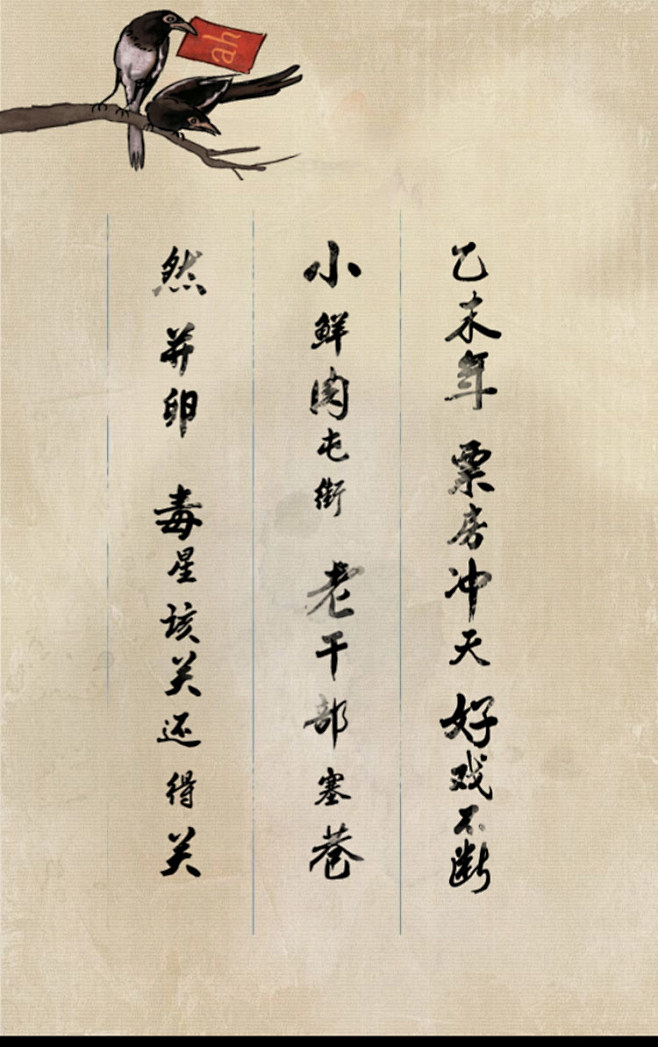 ah
乙未年 票房冲天 好戏不断
小鲜肉屯街 老干部塞巷
然并卵 毒星该关还得关